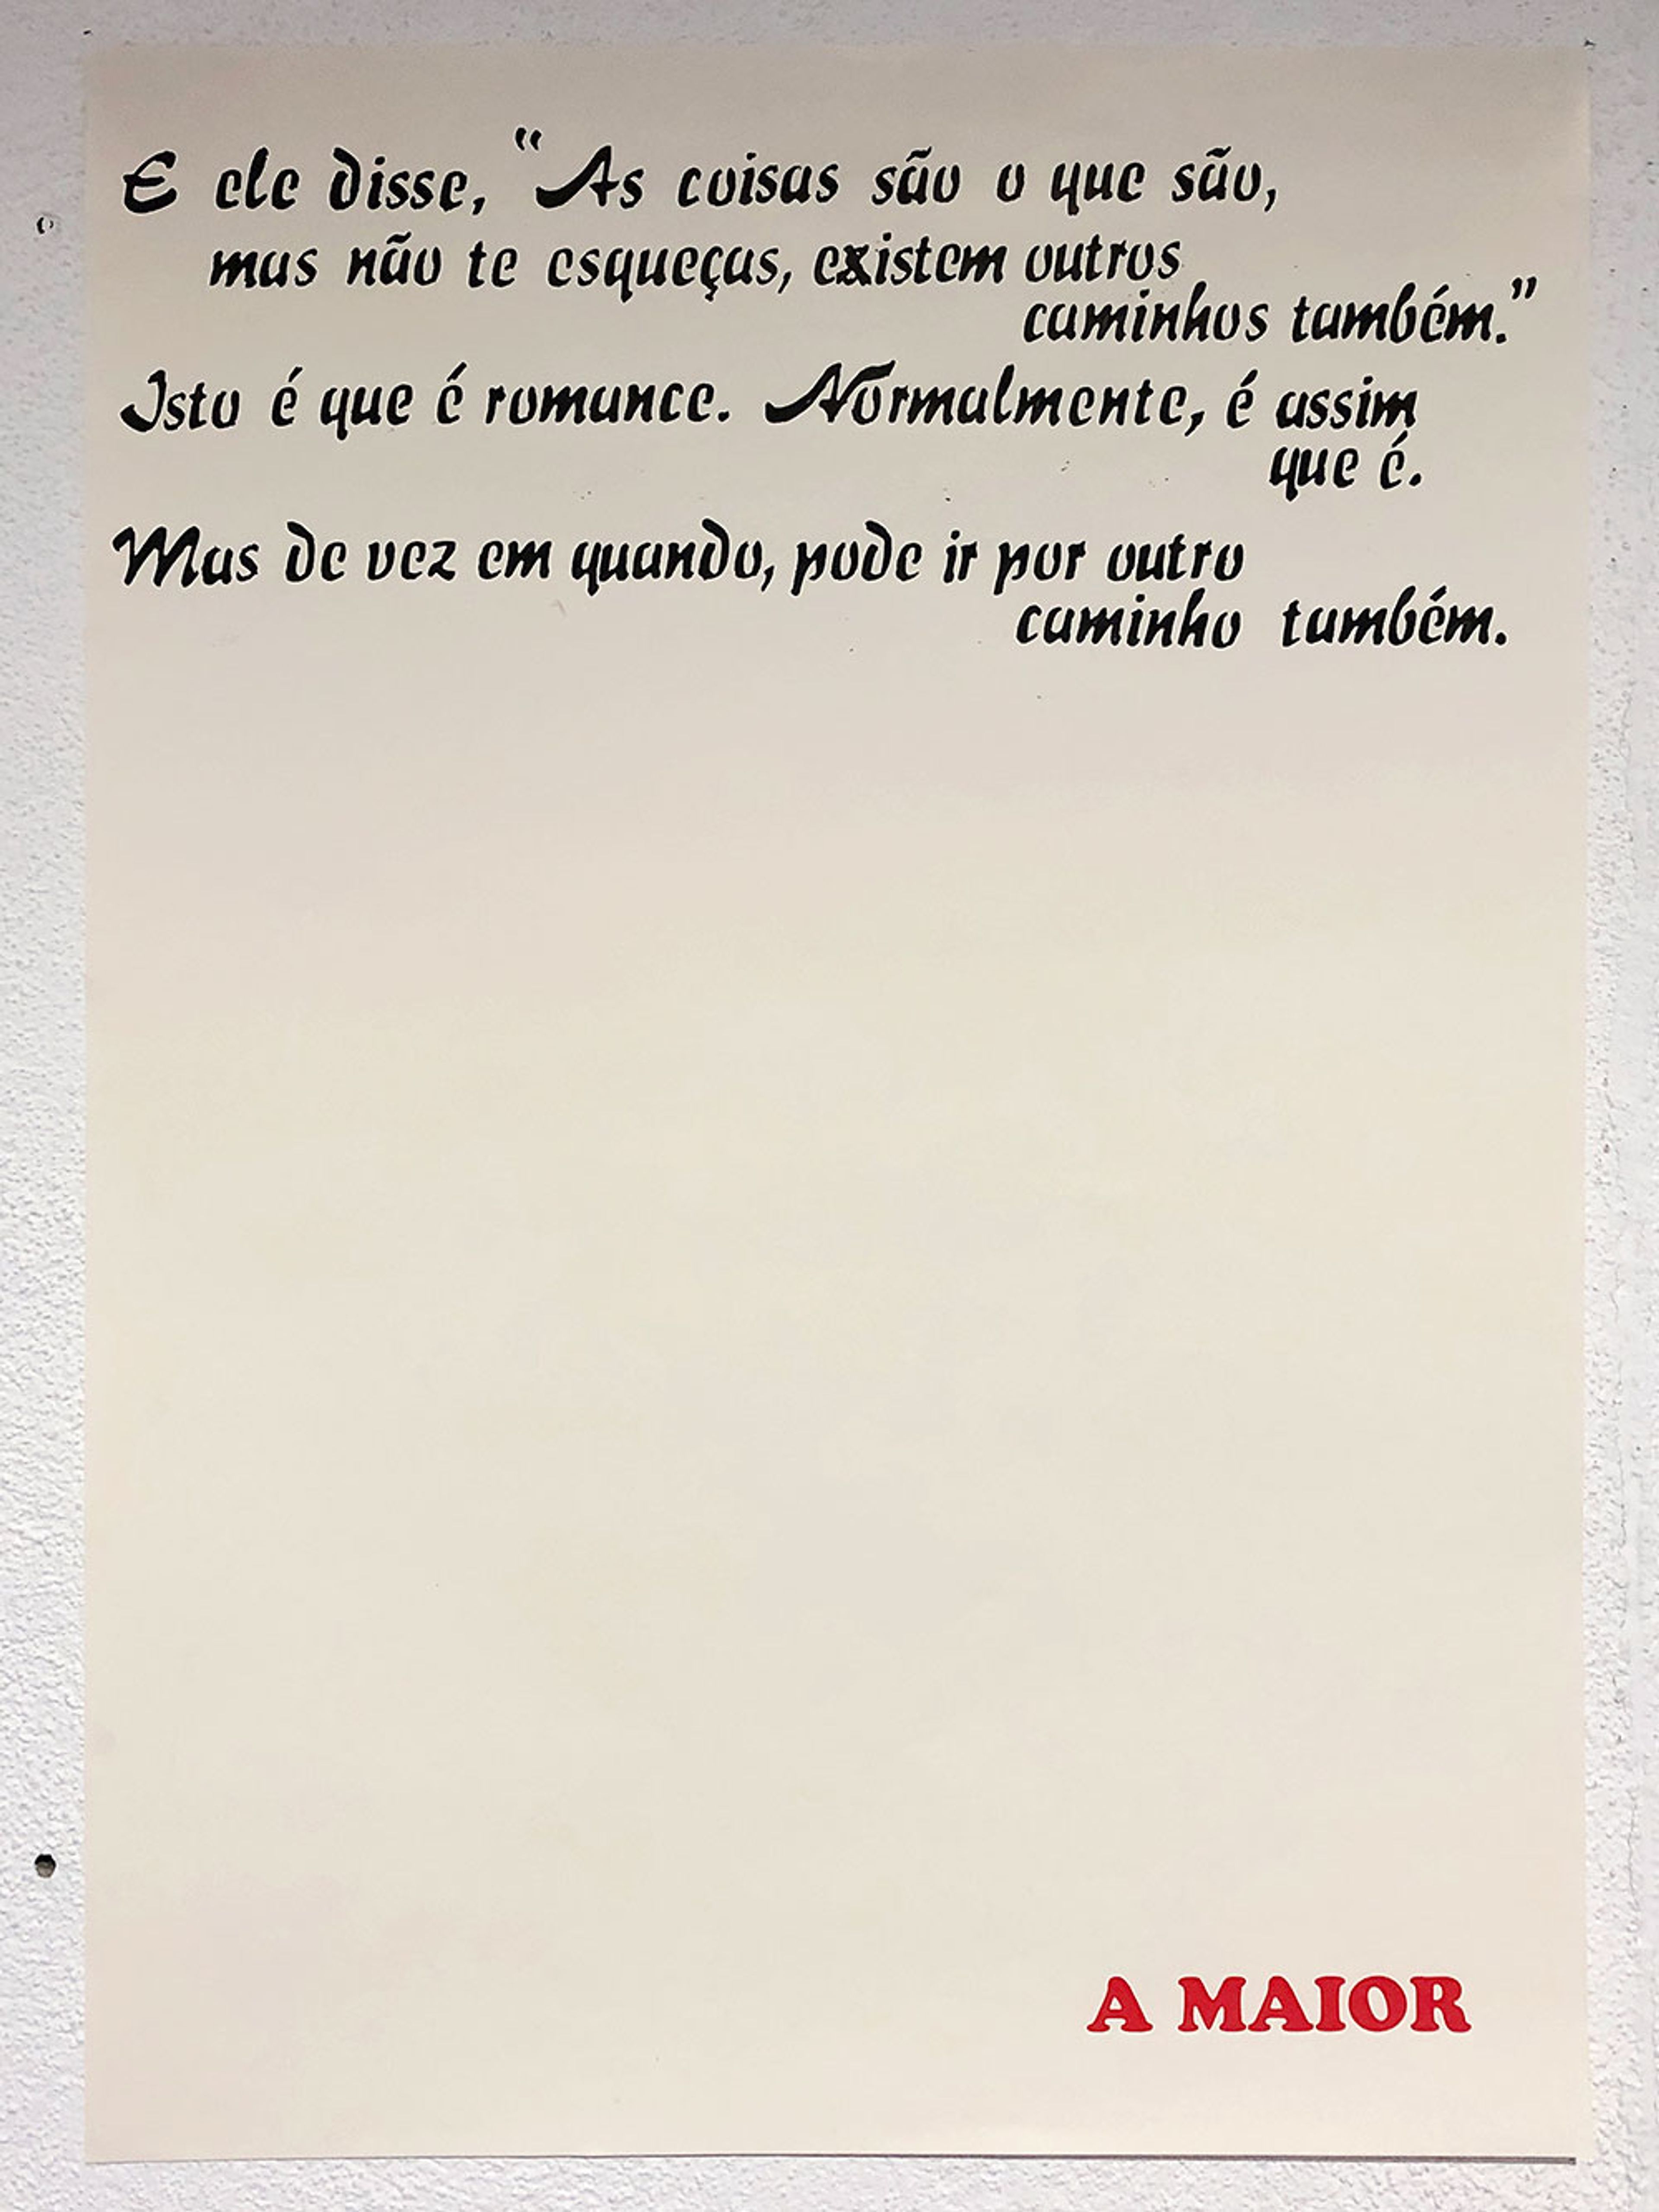 E ele disse, “As coisas são o que são,
mas não te esqueças, existem outros
caminhos também.”
Isto é que é romance. Normalmente, é assim
que é.
Mas de vez em quando, pode ir por outro
caminho também.
A MAIOR